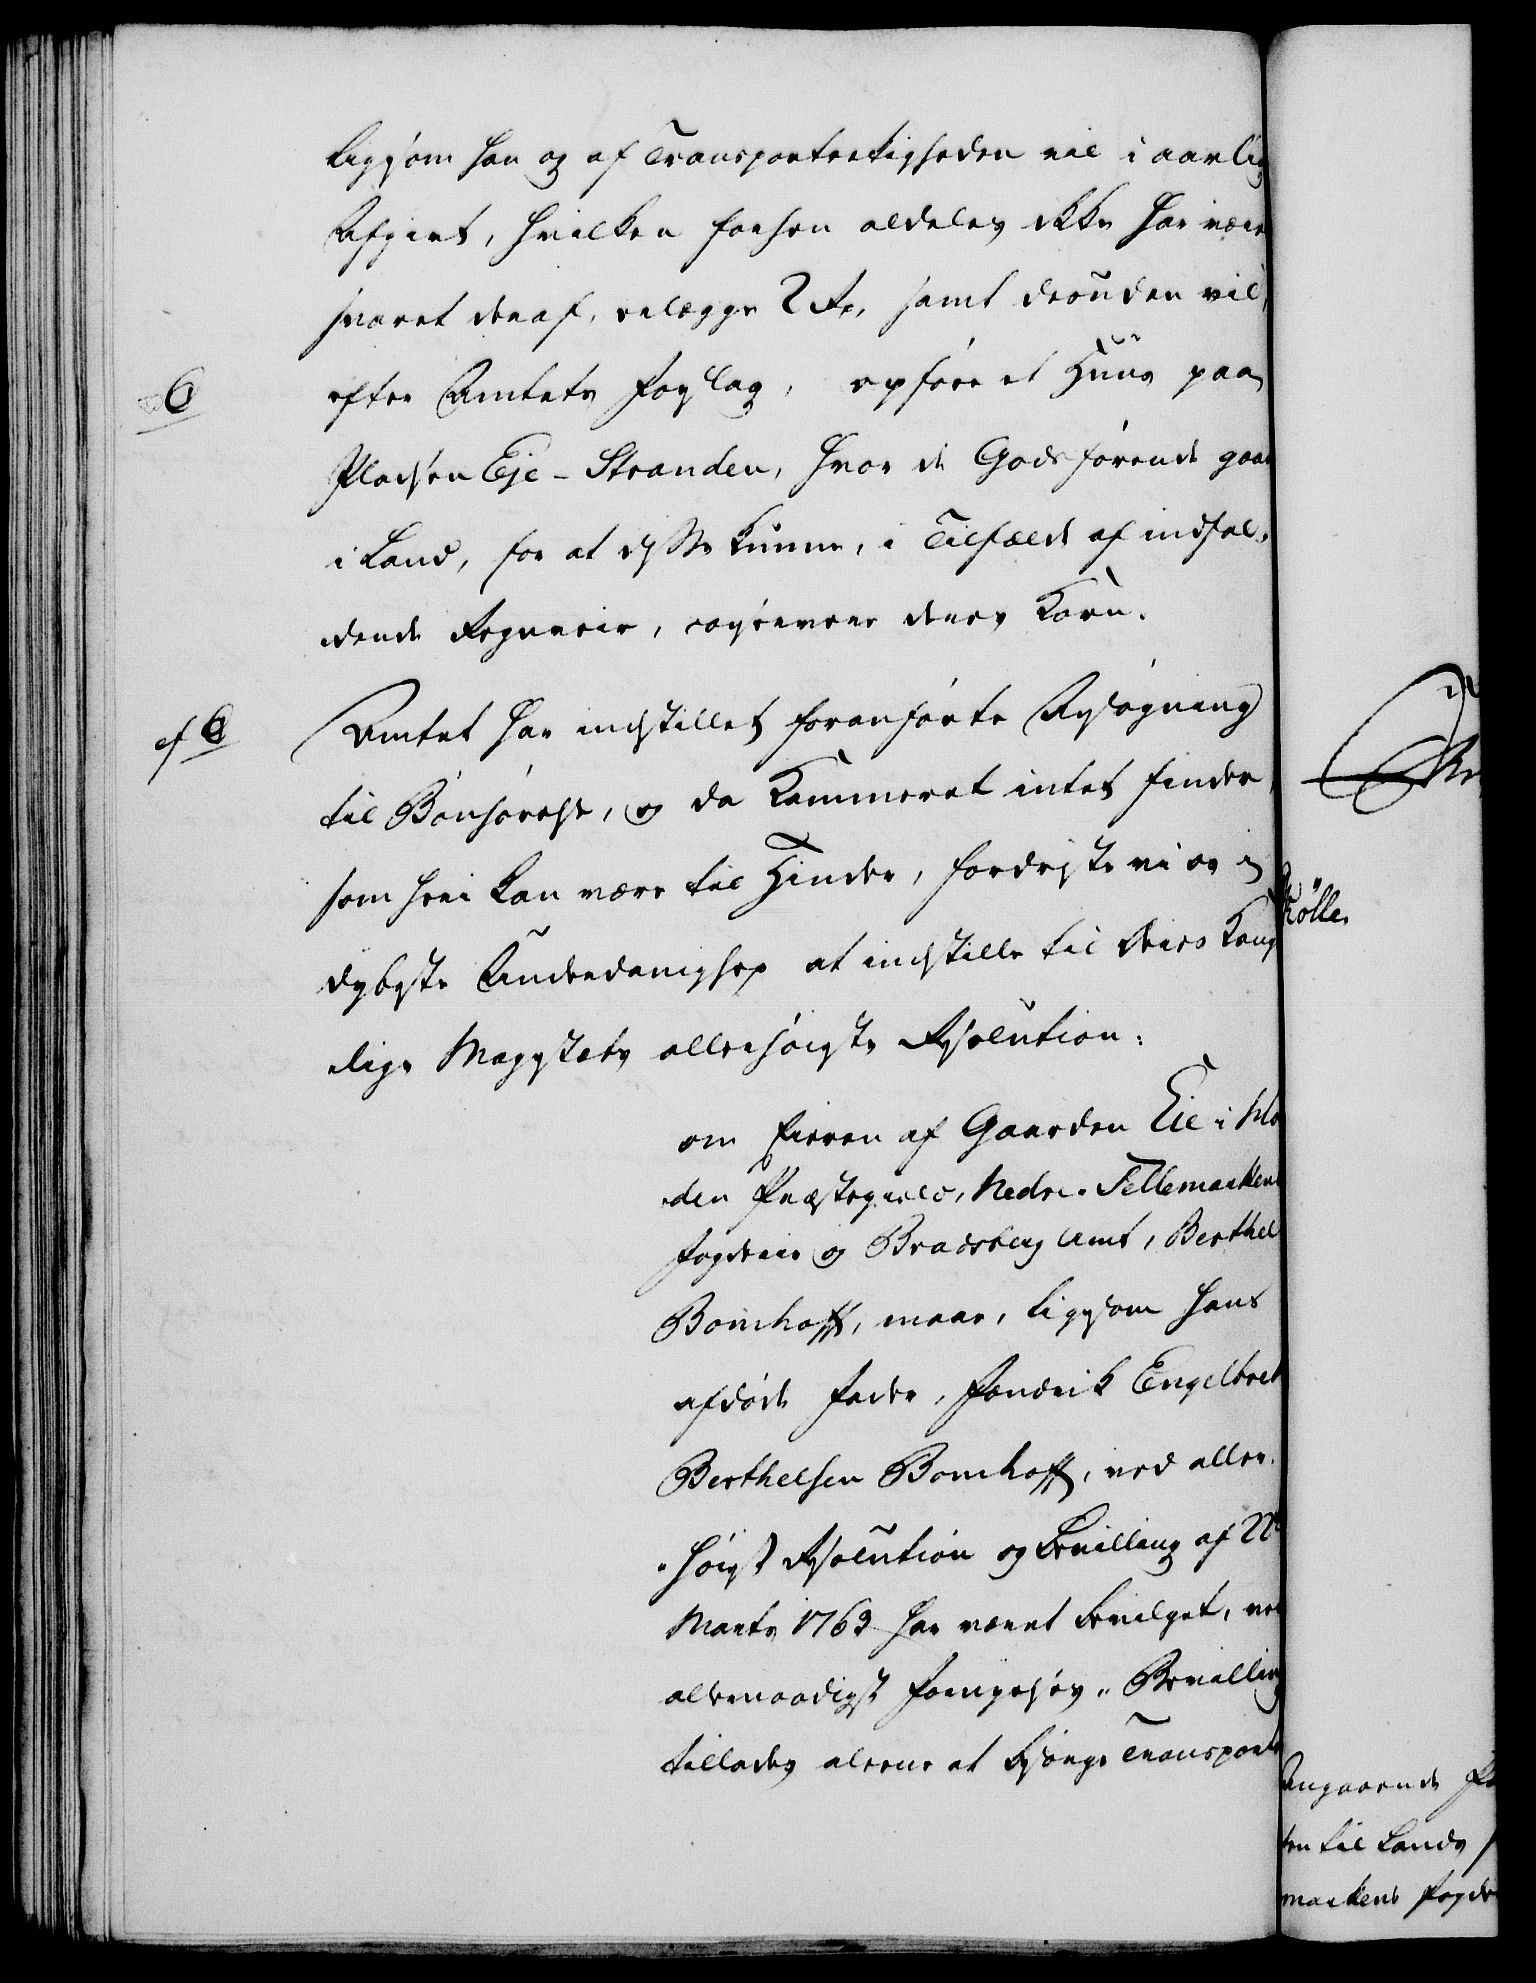 ligesom han og af Transportrettigheden vil i aarlig
Afgivt, hvilken forhen aldeles ikke har været
svaret deraf, erlægge 2 Rd, samt desuden vil,
6
efter Amtets Forslag, opføre et Huus paa
Pladsen Eje-Stranden, hvor de Godsførende gaae
i Land, for at disse kunne, i Tilfælde af indfal-
dende Regnveir, conservere deres Korn.
f 6
Amtet har indstillet foranførte Ansøgning
til Bønhørelse, og da Kammeret intet finder,
som heri kan være til Hinder, fordriste vi os i
dybeste Underdanighed at indstille til Deres Konge-
lige Majestæts allerhøieste Resolution:
om Eieren af Gaarden Eie i Slo
den Præstegield, Nedre-Tellemarkens
Fogderie og Bradsberg Amt, Berthel
Bomhoff, maae, ligesom hans
afdøde Fader, Fændrik Engelbret
Berthelsen Bomhoff, ved aller-
høiest Resolution og Bevilling af 22de
Marts 1763 har været bevilget, ved
allernaadigst fornyelses-Bevilling
tillades alene at besørge Transporte
Kølle.
angaaende
ten til Lands
markens Fogde